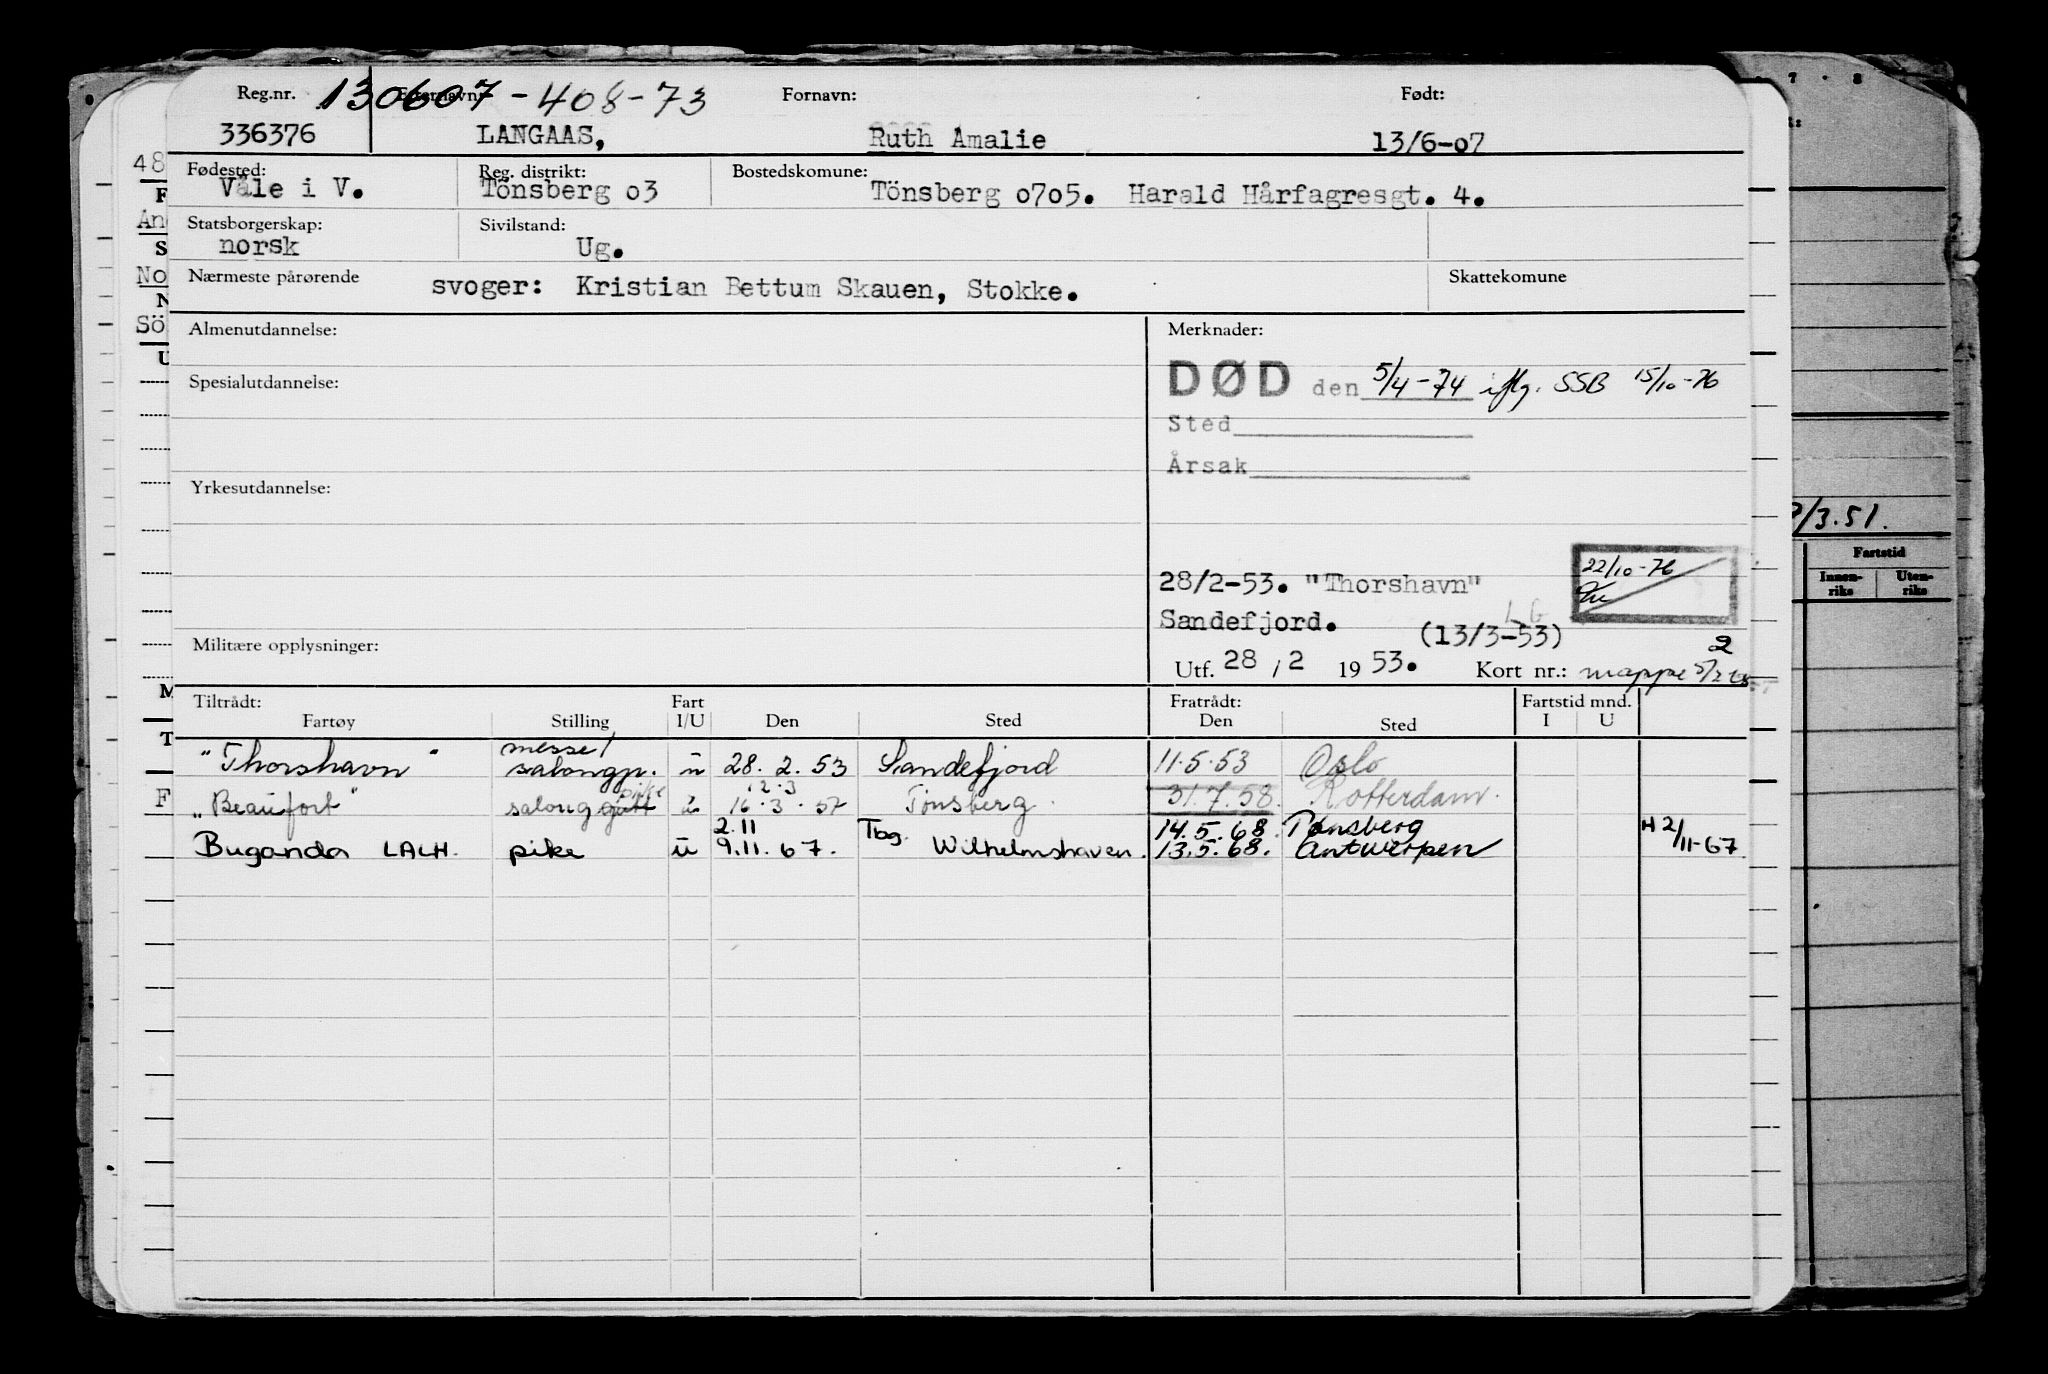 Reg.nr. Etternavn: Fornavn: Født:
130607-408-73
336376 LANGAAS, Ruth Amalie 13/6-07
Fødested: Reg. distrikt: Bostedskomune:
Våle i V. Tönsberg 03 Tönsberg 0705. Harald Hårfagresgt. 4.
Statsborgerskap: Sivilstand:
norsk Ug.
Nærmeste pårørende svoger: Kristian Bettum Skauen, Stokke. Skattekomune
Almenutdannelse: Merknader:
Spesialutdannelse: DØD den 5/4-74 iflg. SSB 15/10-76
Sted
Årsak
Yrkesutdannelse:
22/10-76
28/2-53. "Thorshavn"
Sandefjord. (13/3-53) LG
Militære opplysninger:
Utf. 28 / 2 19 53. Kort nr.: mappe 2
Tiltrådt: Fart Fratrådt: Fartstid mnd.
Fartøy Stilling I/U Den Sted Den Sted I U
"Thorshavn" messe/ salongp. u 28. 2. 53 Sandefjord 11.5.53 Oslo
"Beaufort" salonggutt pike u 16.3.57 12.3 Tønsberg. 31.7.58. Rotterdam.
2.11 Tbg. 14.5.68. Tønsberg
Buganda LALH. pike u 9.11.67. Wilhelmshaven. 13.5.68. Antwerpen H 2/11-67
48
F
An
S
No
N
Sö
U
M
T
F
7 . 8
/3.51.
Fartstid
Innen- Uten-
riks riks